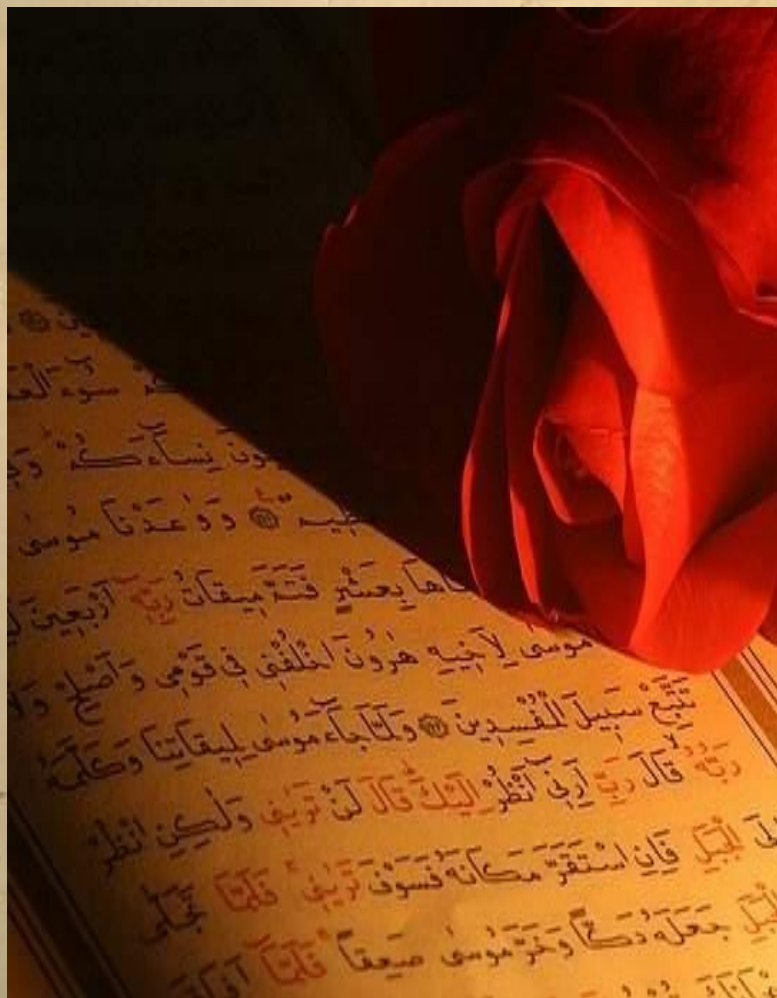 سُوٓءَ الْعَ
نِسَآءَكُمْ وَ
وَوٰعَدْنَا مُوسٰى
بِعَشْرٍ فَتَمَّ مِيقَاتُ رَبِّهٖٓ اَرْبَعِينَ لَ
مُوسٰى لِاَخِيهِ هٰرُونَ اخْلُفْنِى فِى قَوْمِى وَاَصْلِحْ وَلَا
تَتَّبِعْ سَبِيلَ الْمُفْسِدِينَ وَلَمَّا جَآءَ مُوسٰى لِمِيقَاتِنَا وَكَلَّمَهُ
رَبُّهُ قَالَ رَبِّ اَرِنِىٓ اَنْظُرْ اِلَيْكَ قَالَ لَنْ تَرٰينِى وَلٰكِنِ انْظُرْ
الْجَبَلِ فَاِنِ اسْتَقَرَّ مَكَانَهُ فَسَوْفَ تَرٰينِى فَلَمَّا تَجَلّٰى
جَعَلَهُ دَكًّا وَخَرَّ مُوسٰى صَعِقًا فَلَمَّآ اَفَاقَ